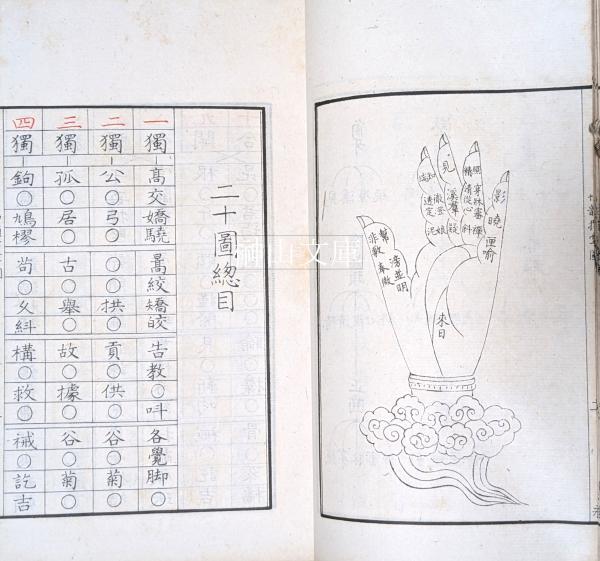 影曉匣喻
穿牀審禪
精清從心斜
見溪羣疑
徹澄娘
透定泥
幫滂並明
非敷奉微
來日
二十圖總目
一獨高交嬌驍暠絞矯皎告教○叫各覺脚○
二獨公○弓○○○拱○貢○供○谷○菊○
三獨孤○居○古○舉○故○據○谷○菊○
四獨鉤○鳩樛苟○夊糾構○救○裓○訖吉
神山文庫